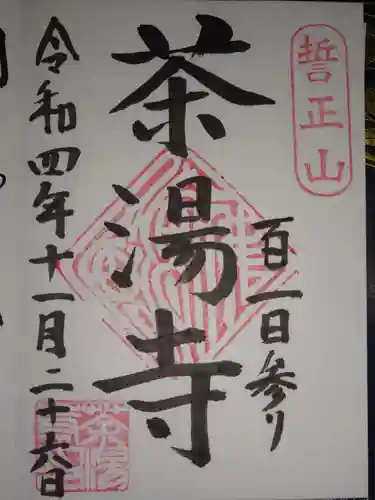 誓正山
百一日参り
茶湯寺
令和四年十一月二十六日
茶湯寺印